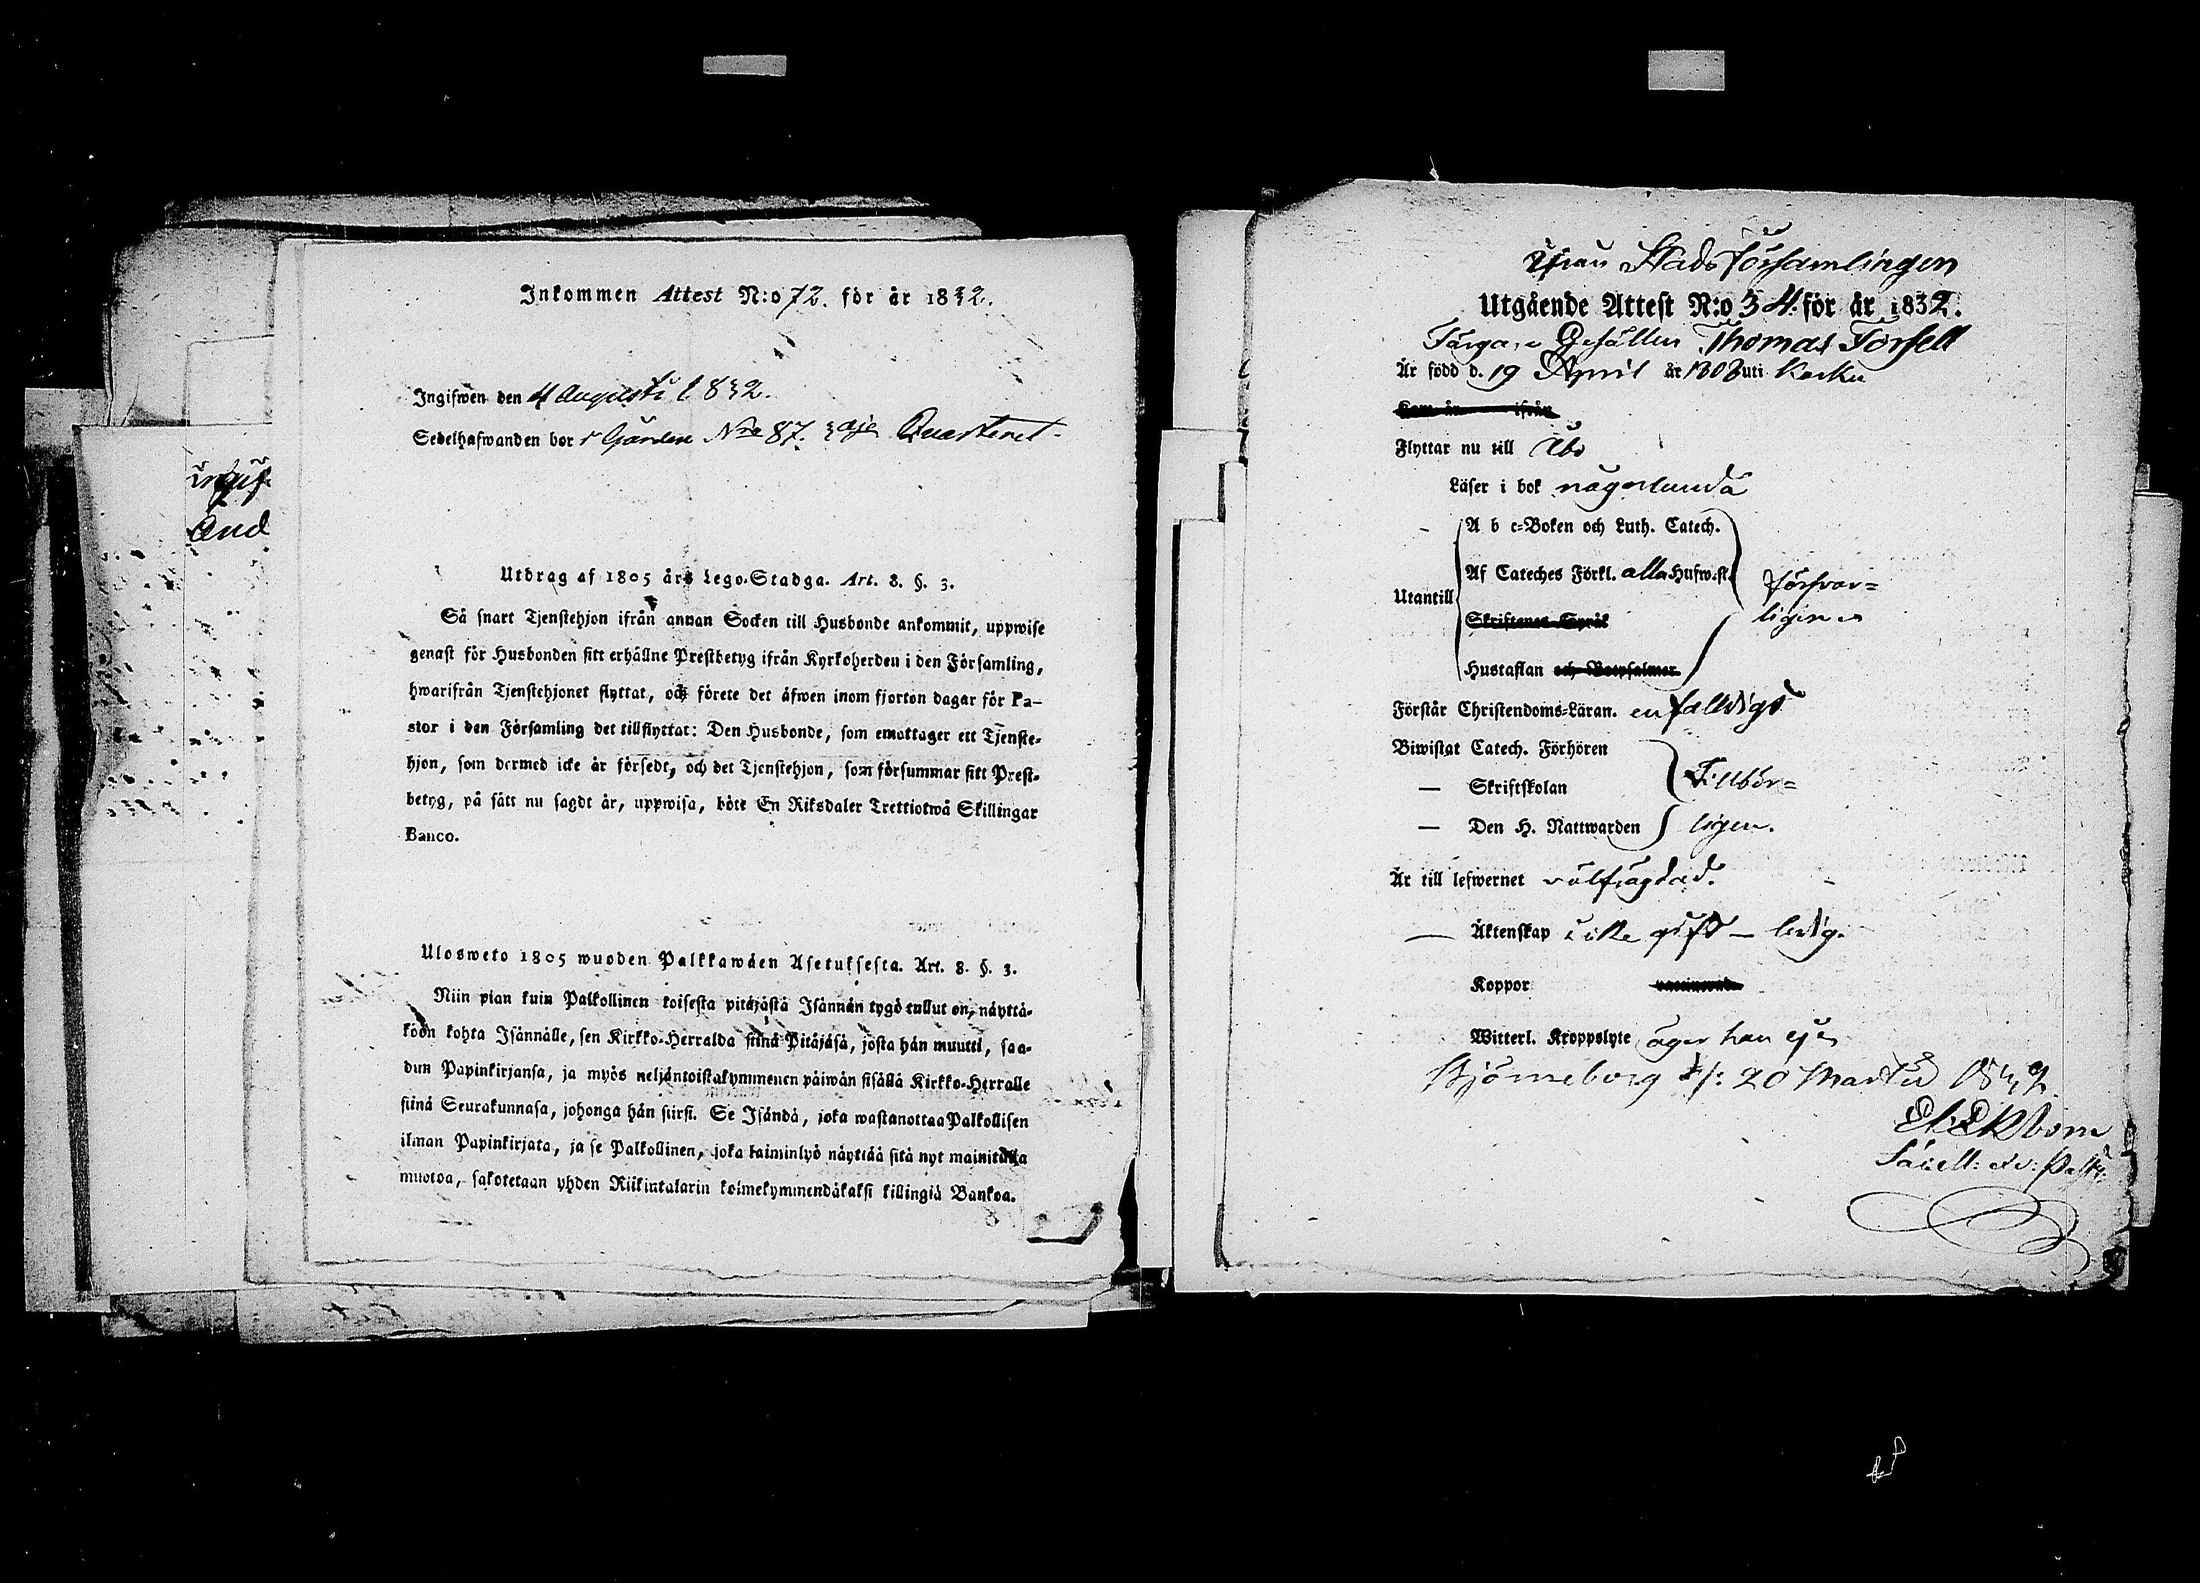 Inkommen Attest N:o 72. för år 1832.
Ingifwen den 4 Augusti 1832.
Sedelhafwanden bor i Gården Nro 87. 3dje Quarteret.
ingif
And
Utdrag af 1805 års Lego-Stadga. Art. 8. §. 3.
Så snart Tjenstehjon ifrån annan Socken till Husbonde ankommit, uppwise
genast för Husbonden sitt erhållne Prestbetyg ifrån Kyrkoherden i den Församling,
hwarifrån Tjenstehjonet flyttat, och förete det äfwen inom fjorton dagar för Pa-
stor i den Församling det tillflyttat: Den Husbonde, som emottager ett Tjenste-
hjon, som dermed icke är försedt, och det Tjenstehjon, som försummar sitt Prest-
betyg, på sätt nu sagdt är, uppwisa, böte En Riksdaler Trettiotwå Skillingar
Banco.
Ulosweto 1805 wuoden Palkkawäen Asetuksesta. Art. 8. §. 3.
Niin pian kuin Palkollinen toisesta pitäjästä Isännän tygö tullut on, näyttä-
köön kohta Isännälle, sen Kirkko-Herralda siinä Pitäjäsä, josta hän muutti, saa-
dun Papinkirjansa, ja myös neljäntoistakymmenen päiwän sisällä Kirkko-Herralle
siinä Seurakunnasa, johonga hän siirsi. Se Isändä, joka wastanottaa Palkollisen
ilman Papinkirjata, ja se Palkollinen, joka laiminlyö näyttää sitä nyt mainitulla
muotoa, sakotetaan yhden Riikintalarin kolmekymmendäkaksi killingiä Bankoa.
Ifrån Stads församlingen
Utgående Attest N:o 34 för år 1832.
Färgare Gesällen Thomas Forsell
Är född d. 19 April år 1808 uti Karku
Kom år ifrån
Flyttar nu till Åbo
Läser i bok någorlunda
A b c-Boken och Luth. Catech.
Af Cateches Förkl. alla Hufw.st. försvar-
Utantill
Skriftenes Språk ligen
Hustaflan och Botpsalmer
Förstår Christendoms-Läran. enfalldigt
Biwistat Catech. Förhören
— Skriftskolan Tillbör-
— Den H. Nattwarden ligen.
Är till lefwernet välfrägdad.
— Äktenskap icke gift – ledig.
Koppor vaccinerad
Witterl. Kroppslyte äger han ej
Björneborg d: 20 Martii 1832.
Ekbom